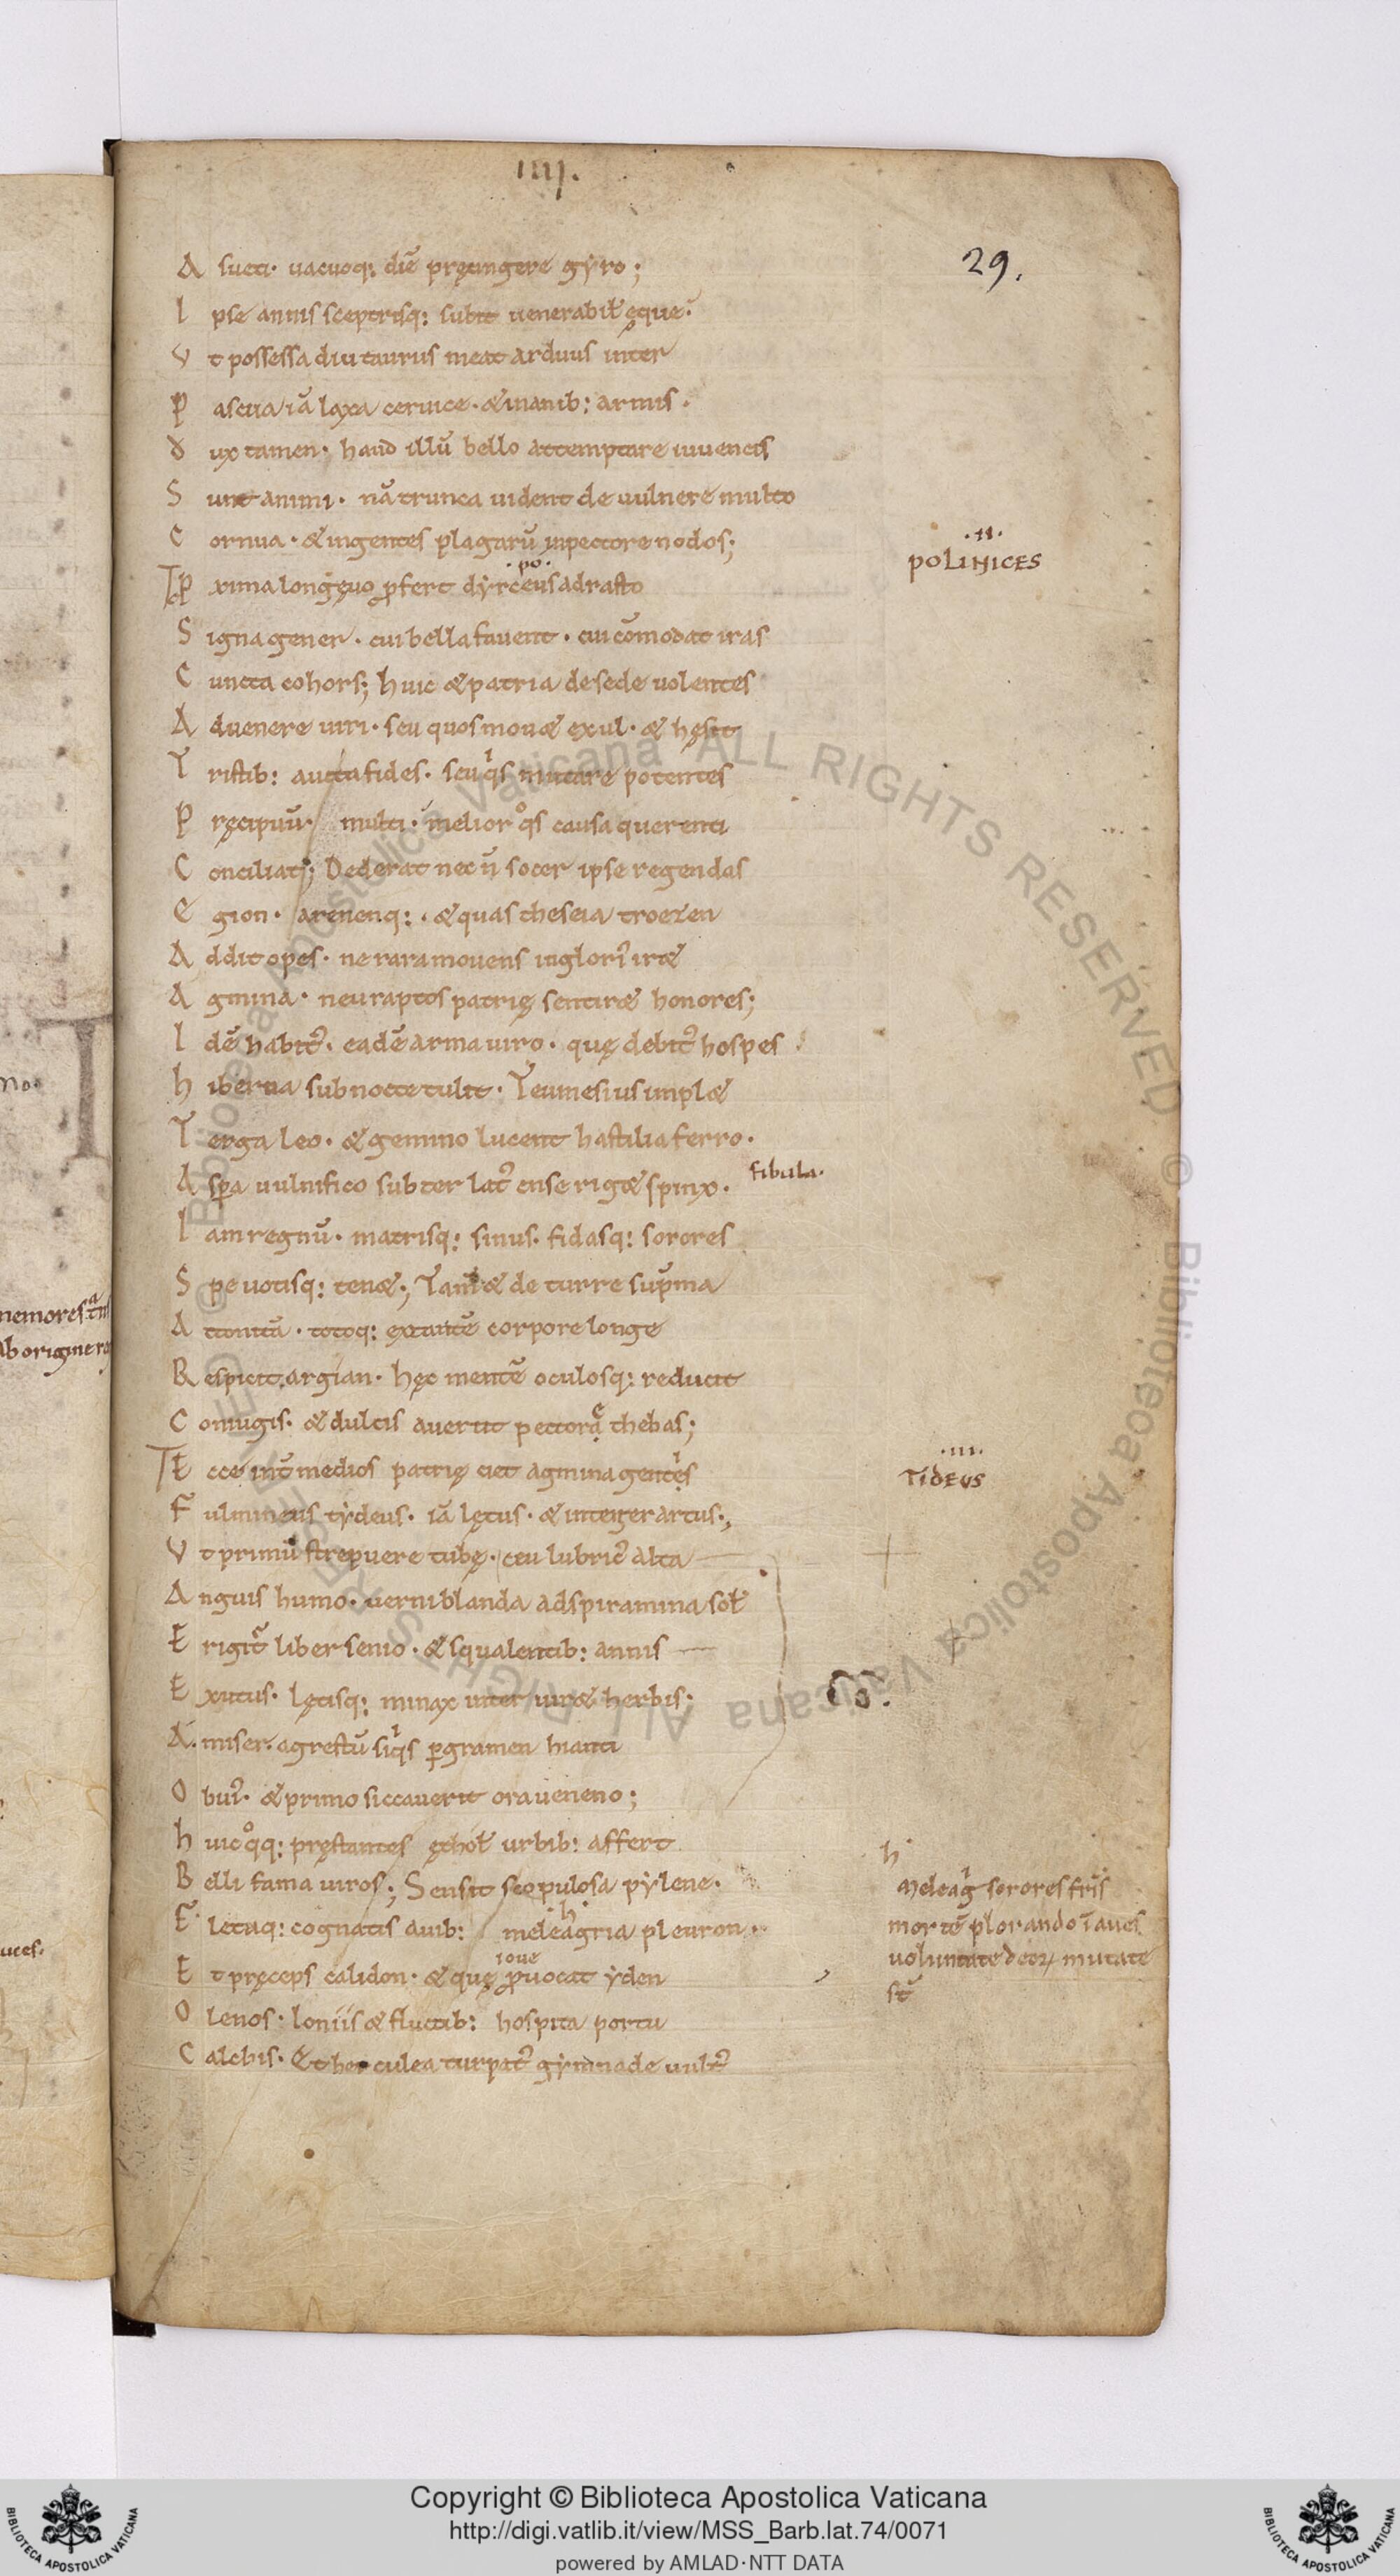 IIII.
29.
A sueti· uacuoq; diē pręcingere gyro;
I pse annis sceptrisq; subit uenerabił ęque·
V t possessa diu taurus meat arduus inter
P ascua iā laxa ceruice· & inanib; armis·
D ux tamen· haud illū bello attemptare iuuencis
S unt animi· nā trunca uident de uulnere multo
C ornua· & ingentes plagarū inpectore nodos;
·II·
POLINICES
·po·
P xima longęuo ꝓfert dyrceus adrasto
S igna gener· cui bella fauent· cui cōmodat iras
C uncta cohors; huic & patria de sede uolentes
A duenere uiri· seu quos mou& exul· & hęsit
T ristib; aucta fides· seu qⁱs mutare potentes
P ręcipuū· multi· melior qͦs causa querenti
C onciliat; Dederat nec ñ socer ipse regendas
E gion· arenenq;· & quas theseia troezen
A ddit opes· ne rara mouens inglorī ir&
A gmina· neu raptos patrię sentir& honores;
I dē habit᷒· eadē arma uiro· quę debit᷒ hospes
H iberna sub nocte tulit· Teumesius impl&
T erga leo· & gemino lucent hastilia ferro·
A spa uulnifico subter lat᷒ ense rig& spinx·
fibula·
I am regnū· matrisq; sinus· fidasq; sorores
S pe uotisq; ten&; Tam̄ & de turre sup̄ma
A ttonitā· totoq; extantē corpore longe
R espicit argian· hęc mentē oculosq; reducit
C oniugis· & dulcis auertit pectorą̊ thebas;
·III·
TIDEUS
E cce int̄ medios patrię ciet agmina gentẹⁱs
F ulmineus tydeus· iā lętus· & integer artus·,
V t primū strepuere tubę· ceu lubric᷒ alta
A nguis humo· uerni blanda adspiramina soł
E rigit̃ liber senio· & squalentib; annis
E xutus· lętisq; minax inter uir& herbis·
A· miser· agrestū siqⁱs ꝑ gramen hianti
O bui᷒· & primo siccauerit ora ueneno;
H uic qͦq; pręstantes ęthoł urbib; affert
B elli fama uiros; Sensit scopulosa pylene·
·h·
F letaq; cognatis auib; meleagria pleuron·
ioue
E t pręceps calidon· & quę ꝓuocat yden
O lenos· Ioniis & fluctib; hospita portu
C alchis· Et herculea turpat᷒ gymnade uult᷒
h·
Meleagⁱ sorores fr̄is
mortē plorando ī aues
uoluntate deoꝝ mutate
st̄